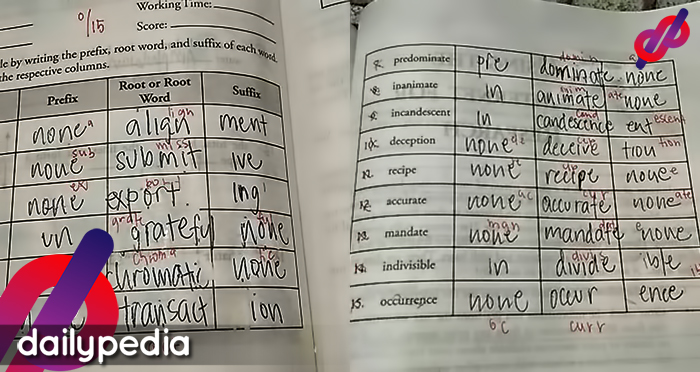 Working Time:
0/15
Score:
le by writing the prefix, root word, and suffix of each word.
the respective columns.
Prefix Root or Root Word Suffix
none a align lign ment
none sub submit miss ive
none ex export port ing
un grate grateful none ful
chroma chromatic none tic
transact ion
predominate pre dominate domin none
inanimate in animate anim none ate
incandescent in candescence cand ent escent
10. deception none de deceive tion tion
recipe none recipe none e
12. accurate none ac accurate cur none ate
mandate none man mandate none
indivisible in divide divis ible
15. occurrence none occur ence
oc curr
dailypedia